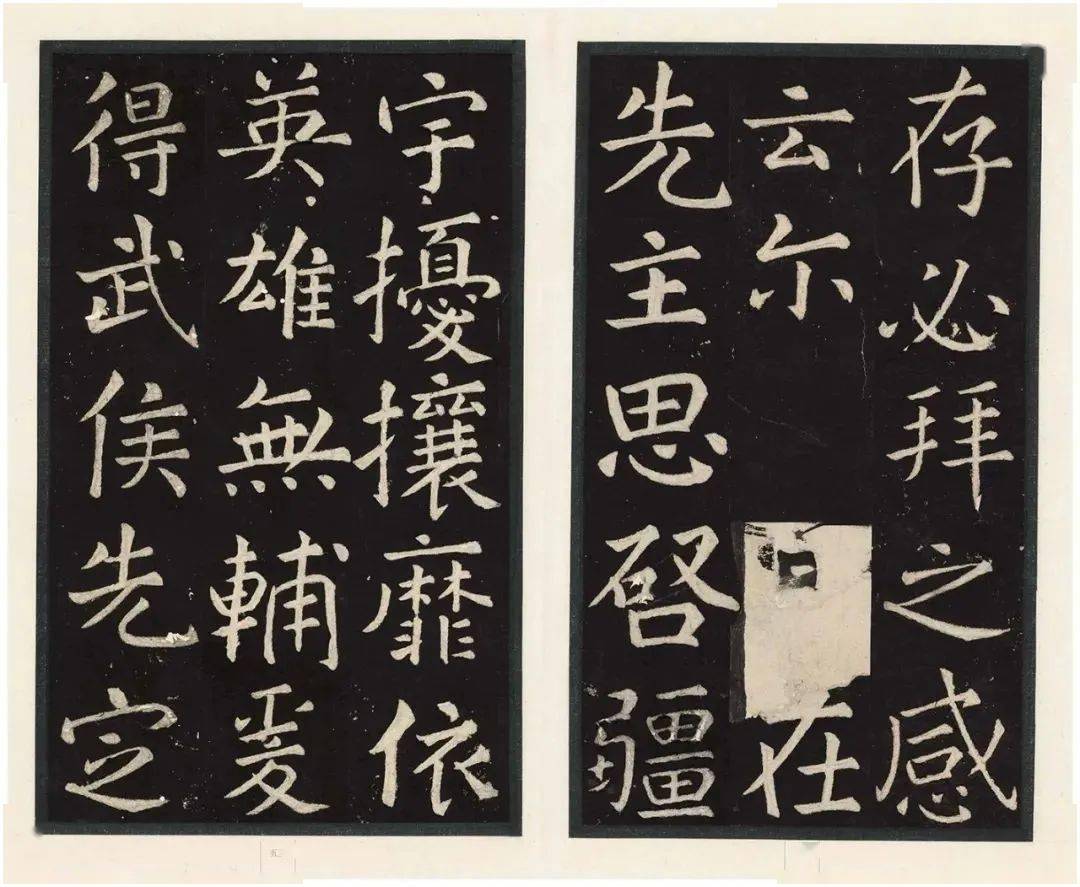 存必拜之感
云尔 在
先主思啓疆
宇擾攘靡依
英雄無輔爰
得武侯先定